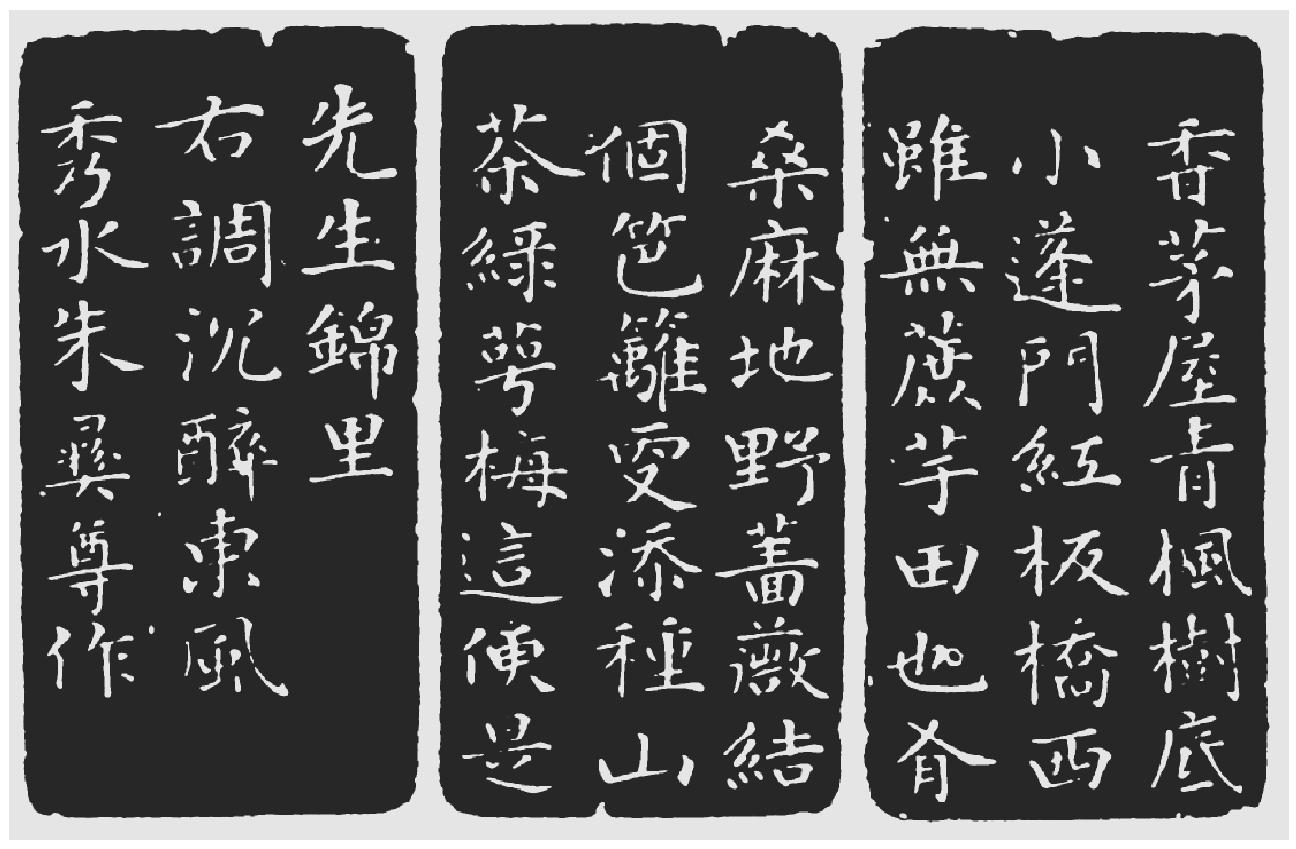 香茅屋青楓樹底
小蓬門紅板橋西
雖無蔗芋田也有
桑麻地野薔薇結
個笆籬更添種山
茶綠萼梅這便是
先生錦里
右調沉醉東風
秀水朱彝尊作